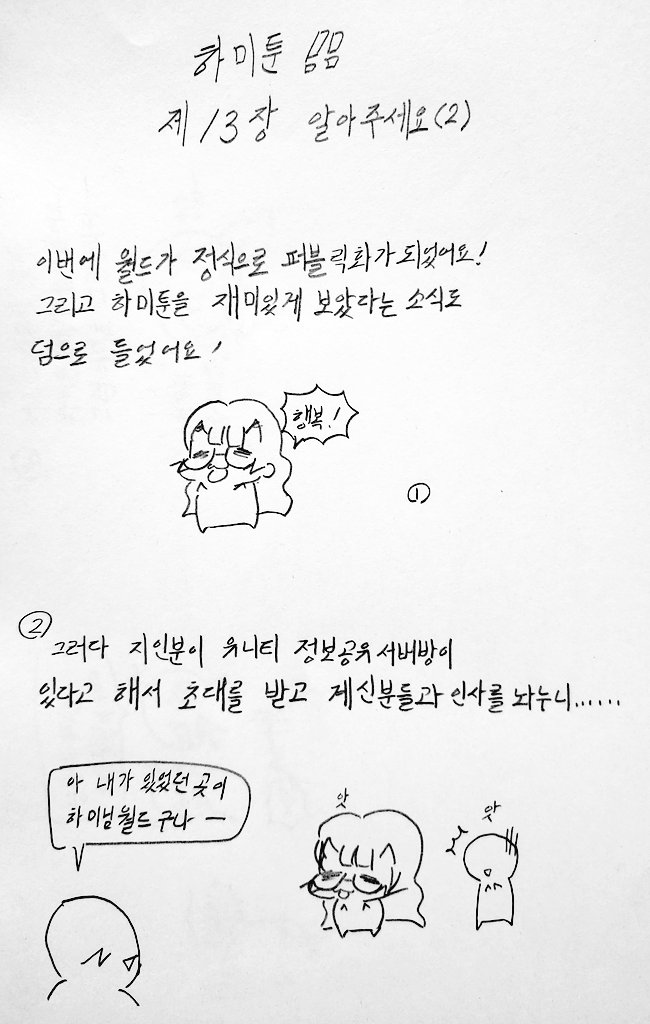 하미툰
제 13장 알아주세요(2)
이번에 월드가 정식으로 퍼블릭화가 되었어요!
그리고 하미툰을 재미있게 보았다라는 소식도
덤으로 들었어요!
행복!
①
②
그러다 지인분이 유니티 정보공유 서버방이
있다고 해서 초대를 받고 계신분들과 인사를 놔누니......
아 내가 있었던 곳이
하미님월드 구나 ㅡ
앗
앗